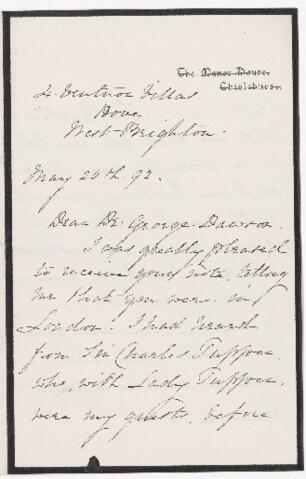 The Manor House,
Chislehurst
4 Ventnor Villas
Hove
West Brighton.
May 24th 92.
Dear Dr. George Dawson.
I was greatly pleased
to receive your note, telling
me that you were in
London. I had heard
from Sir Charles Tupper,
who, with Lady Tupper,
were my guests, before